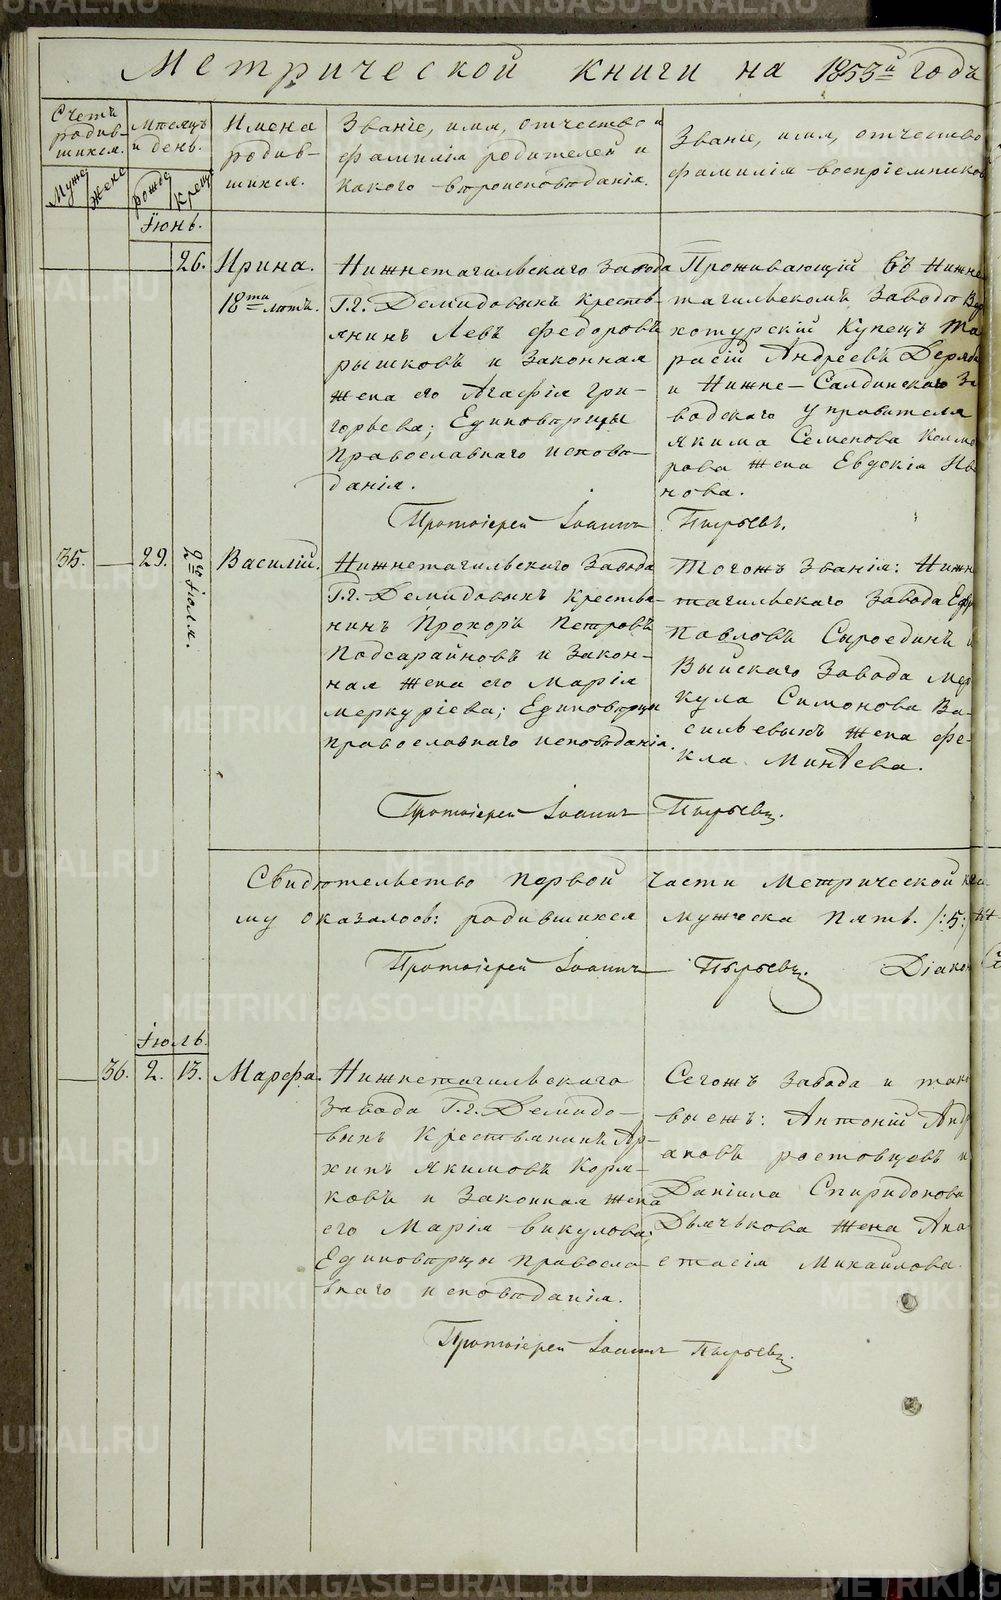 Метрической книги на 1853й годъ
Счетъ родив-шихся.
Муже
Жене
Мѣсяцъ и день.
рожде
Крещ
Имена родив-шихся.
Званіе, имя, отчество и
фамилія родителей и
какого вѣроисповѣданія.
Званіе, имя, отчество
фамилія воспріемников
Іюнь.
26. Ирина.
18ти лѣтъ.
Нижнетагильскаго завода
Г.г. Демидовыхъ кресть-
янинъ Левъ Федоровъ
рышковъ и законная
жена его Агафія Гри-
горьева; Единовѣрцы
православнаго исповѣ-
данія.
Проживающій въ Нижне
тагильскомъ заводѣ Вер
хотурскій купецъ Та
расій Андреевъ Деряб
и Нижне-Салдинскаго За
водскаго управителя
Якима Семенова Колмо
рова жена Евдокія Ива
нова.
Протоіерей Іоаннъ Пырьевъ.
35. 29. 2го Іюля. Василій.
Нижнетагильскаго завода
Г.г. Демидовыхъ крестья-
нинъ Прохоръ Петровъ
Подсарайновъ и закон-
ная жена его Марія
Меркуріева; Единовѣрцы
православнаго исповѣданія.
Тогожъ званія: Нижн
тагильскаго завода
Павловъ Сыроединъ и
Выйскаго завода Мер
кула Симонова Ва-
сильевыхъ жена Фе-
кла Минѣева.
Протоіерей Іоаннъ Пырьевъ.
Свидѣтельство первой части Метрической
му оказалось: родившихся мужеска пять. /:5:/
Протоіерей Іоаннъ Пырьевъ. Діакон
Іюль.
36. 2. 13. Марфа.
Нижнетагильскаго
завода Г.г. Демидо-
выхъ крестьянинъ Ар-
хипъ Якимовъ Коря-
ковъ и законная жена
его Марія Викулова;
Единовѣрцы правосла-
внаго исповѣданія.
Сегожъ завода и тако
выежъ: Антоній Андр
ановъ Ростовцевъ и
Даніила Спиридонова
Дьячькова жена Ана
стасія Михайлова.
Протоіерей Іоаннъ Пырьевъ.
METRIKI.GASO-URAL.RU